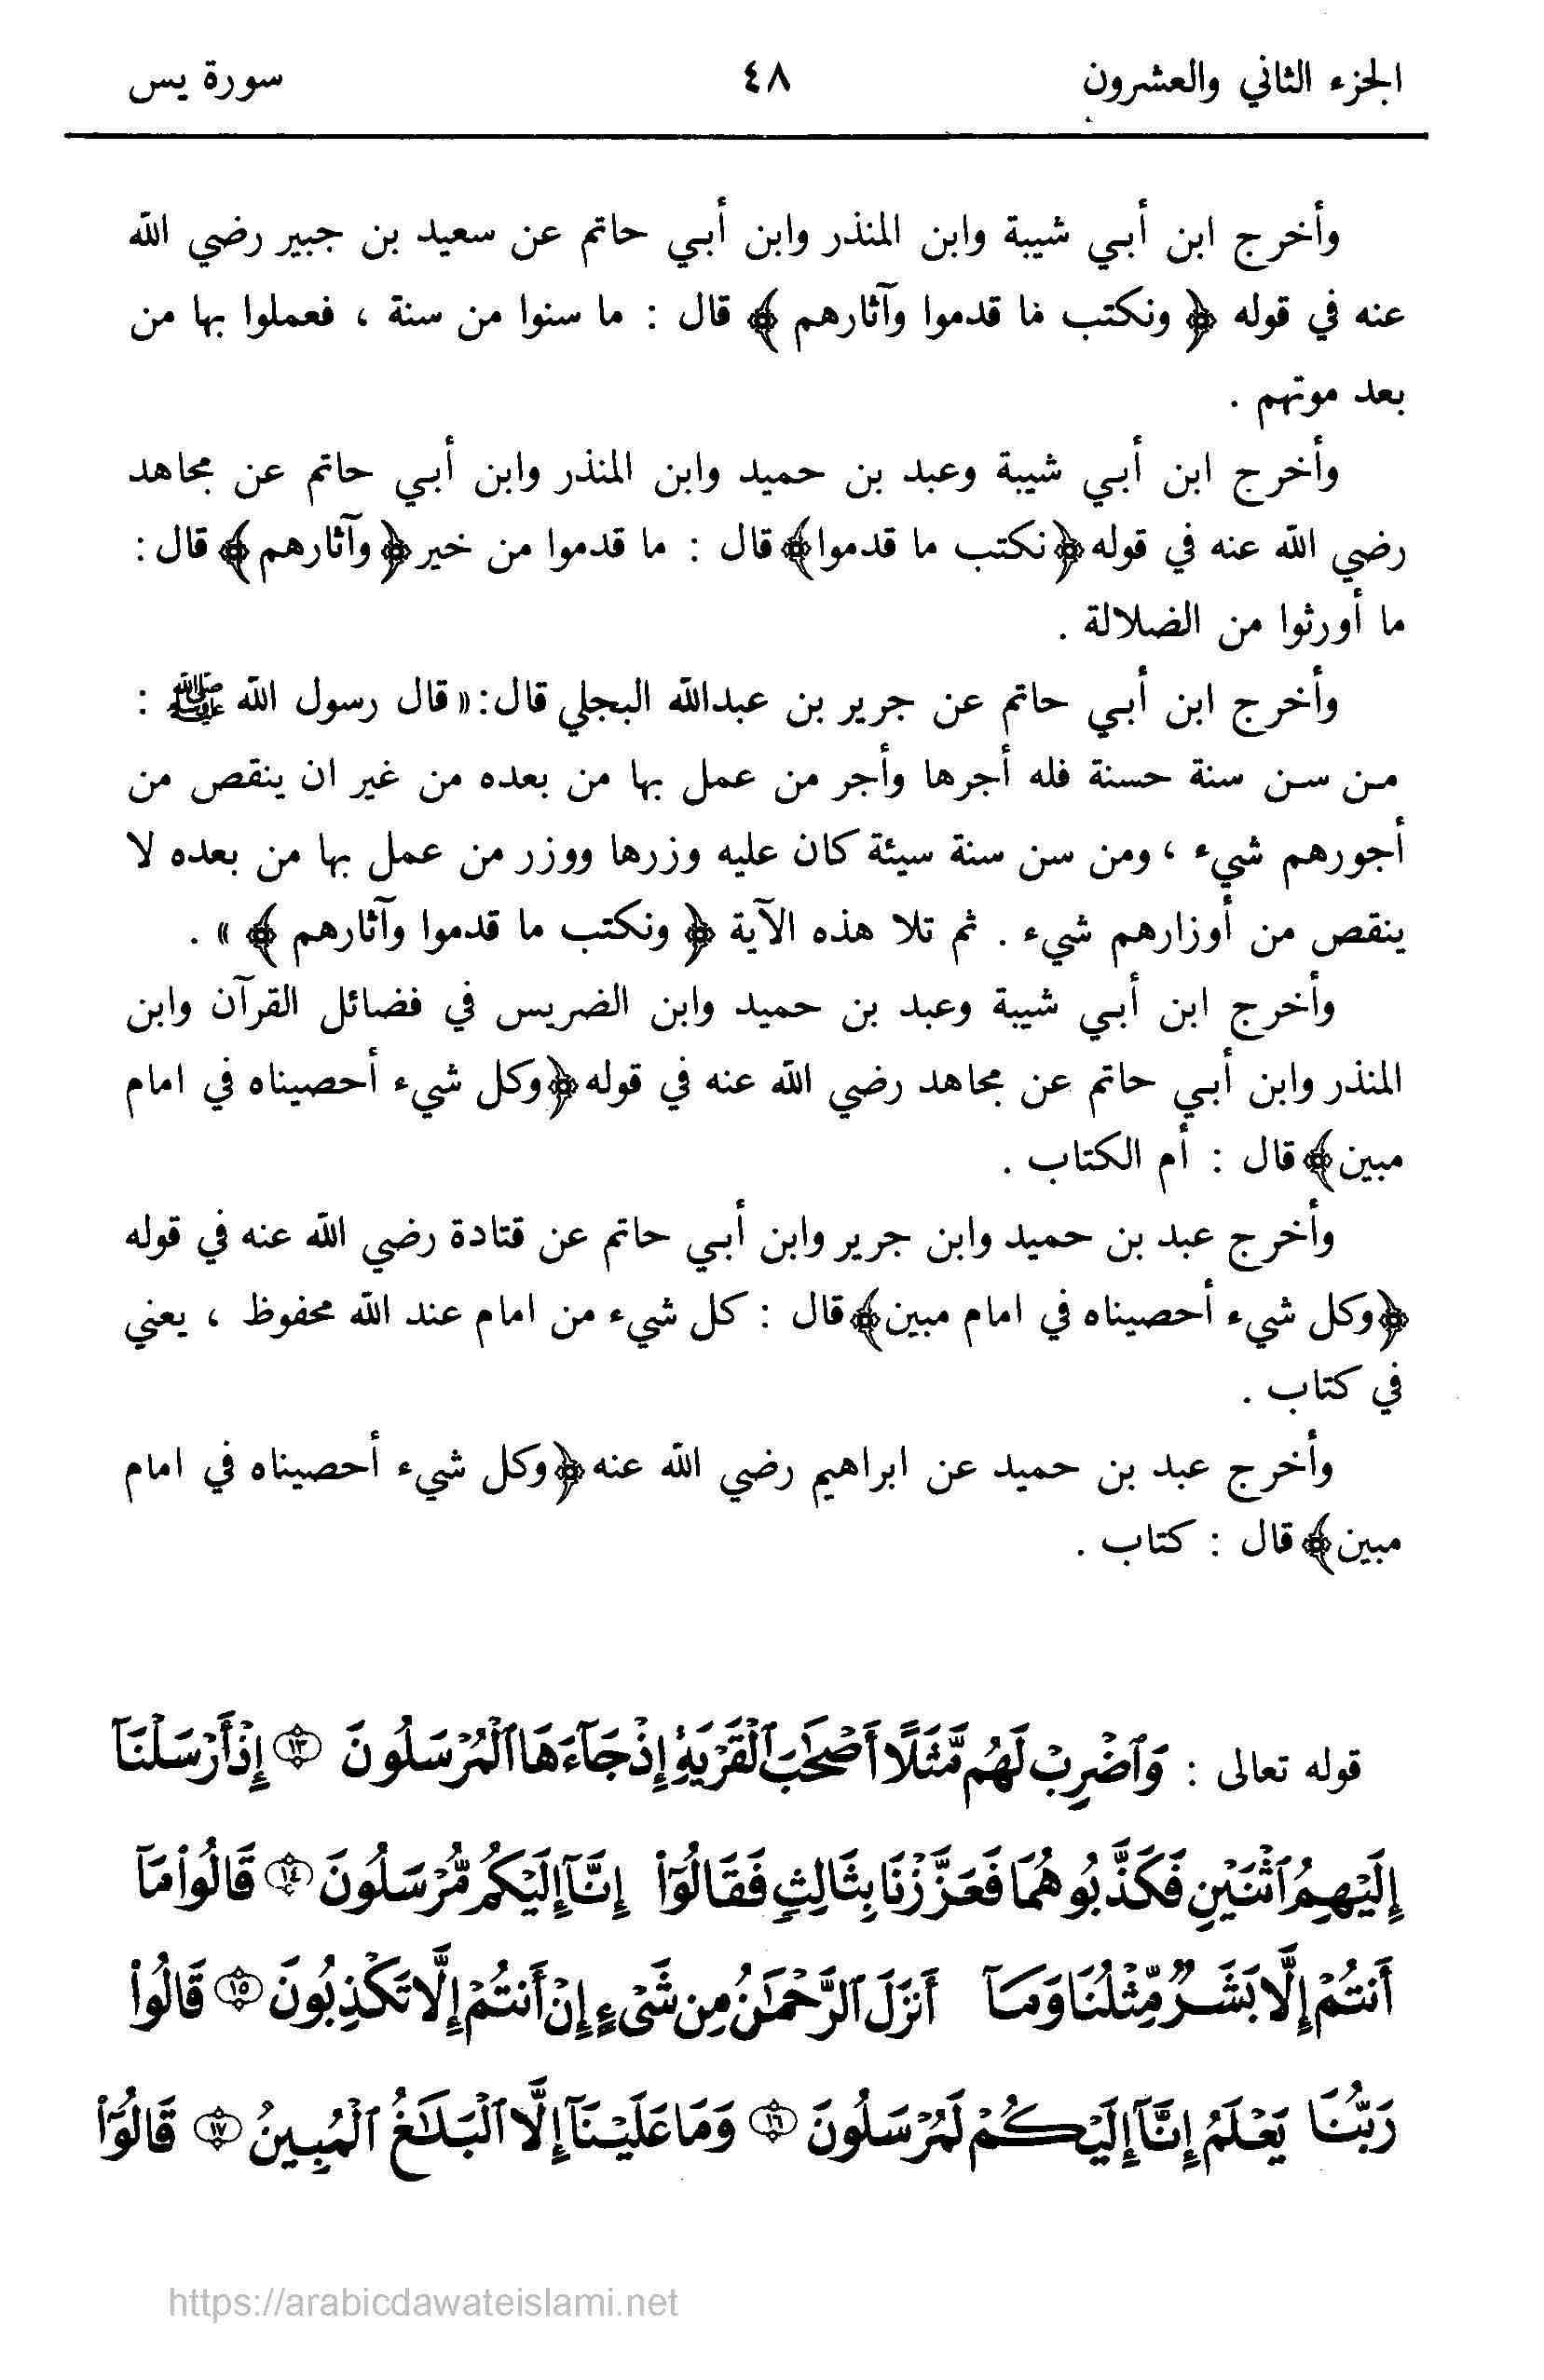 الجزء الثاني والعشرون ٤٨ سورة يس
وأخرج ابن أبي شيبة وابن المنذر وابن أبي حاتم عن سعيد بن جبير رضي الله
عنه في قوله ﴿ ونكتب ما قدموا وآثارهم ﴾ قال : ما سنوا من سنة ، فعملوا بها من
بعد موتهم .
وأخرج ابن أبي شيبة وعبد بن حميد وابن المنذر وابن أبي حاتم عن مجاهد
رضي الله عنه في قوله﴿نكتب ما قدموا﴾قال : ما قدموا من خير﴿وآثارهم﴾قال :
ما أورثوا من الضلالة .
وأخرج ابن أبي حاتم عن جرير بن عبدالله البجلي قال:«قال رسول الله ﷺ :
من سن سنة حسنة فله أجرها وأجر من عمل بها من بعده من غير ان ينقص من
أجورهم شيء ، ومن سن سنة سيئة كان عليه وزرها ووزر من عمل بها من بعده لا
ينقص من أوزارهم شيء . ثم تلا هذه الآية ﴿ ونكتب ما قدموا وآثارهم ﴾ » .
وأخرج ابن أبي شيبة وعبد بن حميد وابن الضريس في فضائل القرآن وابن
المنذر وابن أبي حاتم عن مجاهد رضي الله عنه في قوله﴿وكل شيء أحصيناه في امام
مبين﴾قال : أم الكتاب .
وأخرج عبد بن حميد وابن جرير وابن أبي حاتم عن قتادة رضي الله عنه في قوله
﴿وكل شيء أحصيناه في امام مبين﴾قال : كل شيء من امام عند الله محفوظ ، يعني
في كتاب .
وأخرج عبد بن حميد عن ابراهيم رضي الله عنه﴿وكل شيء أحصيناه في امام
مبين﴾قال : كتاب .
قوله تعالى : وَٱضْرِبْ لَهُم مَّثَلًا أَصْحَٰبَ ٱلْقَرْيَةِ إِذْ جَآءَهَا ٱلْمُرْسَلُونَ ١٣ إِذْ أَرْسَلْنَآ
إِلَيْهِمُ ٱثْنَيْنِ فَكَذَّبُوهُمَا فَعَزَّزْنَا بِثَالِثٍ فَقَالُوٓا۟ إِنَّآ إِلَيْكُم مُّرْسَلُونَ ١٤ قَالُوا۟ مَآ
أَنتُمْ إِلَّا بَشَرٌ مِّثْلُنَا وَمَآ أَنزَلَ ٱلرَّحْمَٰنُ مِن شَىْءٍ إِنْ أَنتُمْ إِلَّا تَكْذِبُونَ ١٥ قَالُوا۟
رَبُّنَا يَعْلَمُ إِنَّآ إِلَيْكُمْ لَمُرْسَلُونَ ١٦ وَمَا عَلَيْنَآ إِلَّا ٱلْبَلَٰغُ ٱلْمُبِينُ ١٧ قَالُوٓا۟
https://arabicdawateislami.net